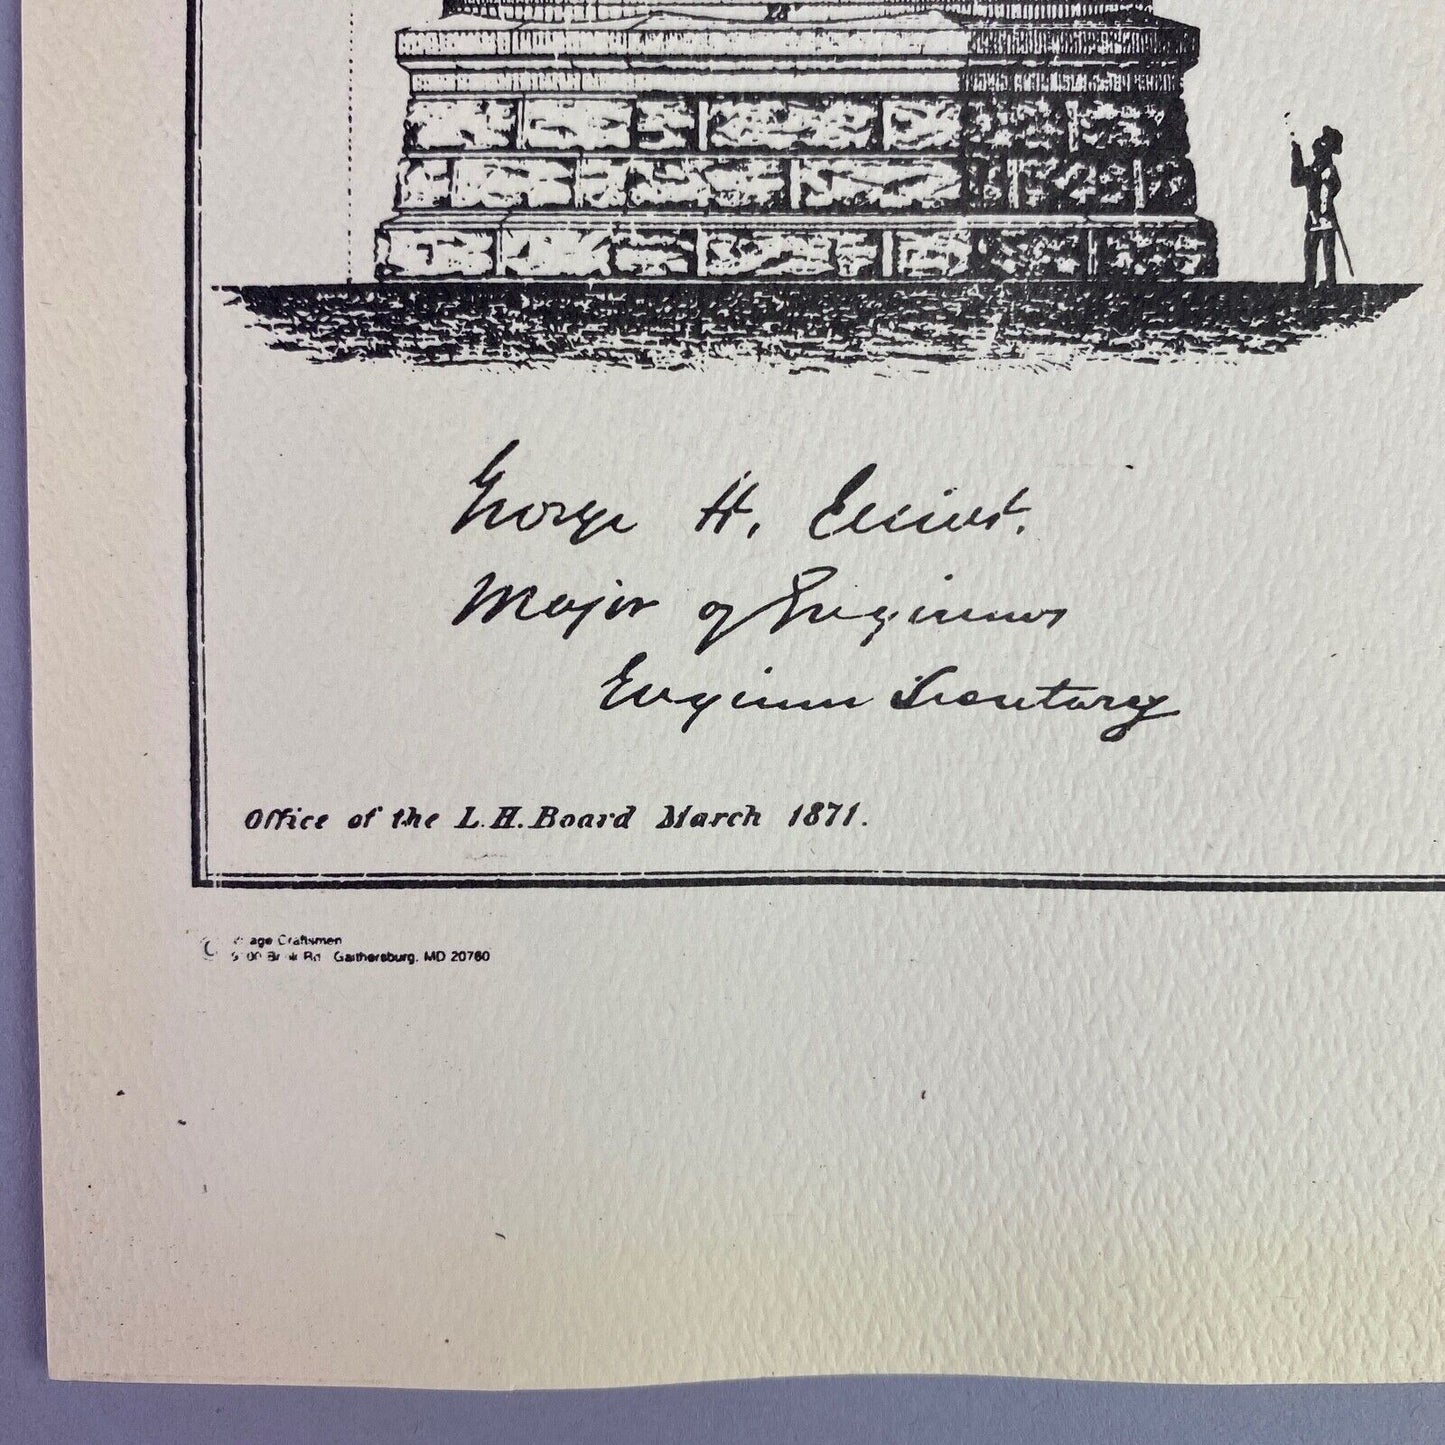 George H. Elliot.
Major of Engineers
Engineer Secretary
Office of the L.H.Board March 1871.
© age Craftsmen
Rd Gaithersburg, MD 20760